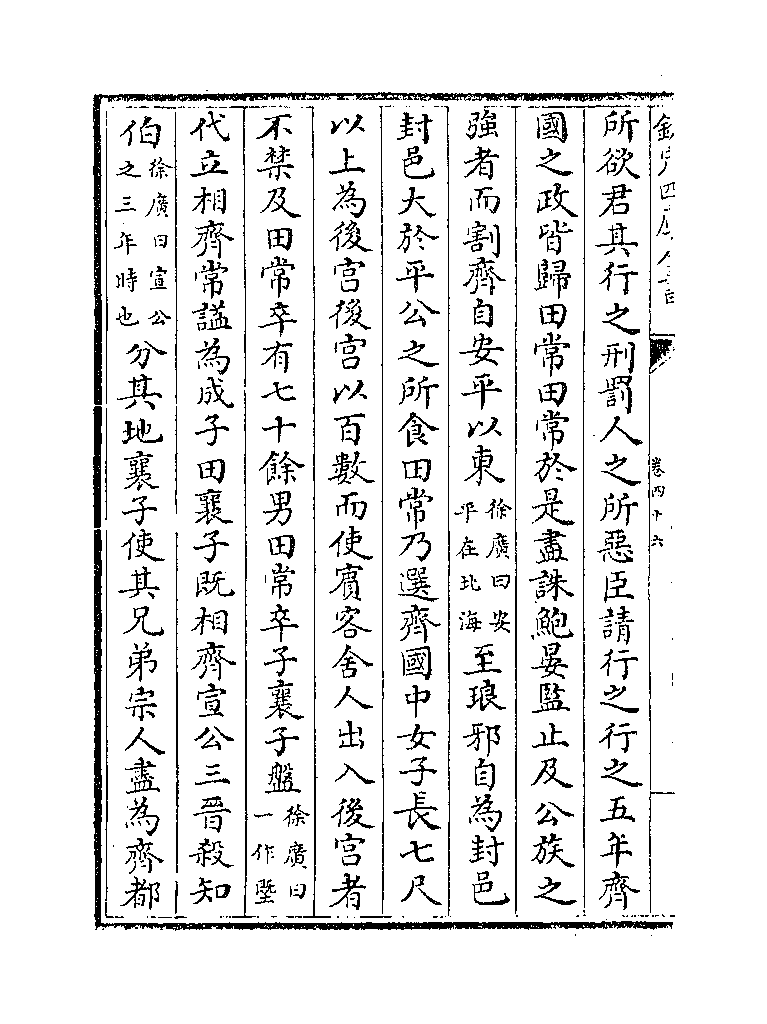 所欲君其行之刑罰人之所惡臣請行之行之五年齊
國之政皆歸田常田常於是盡誅鮑晏監止及公族之
強者而割齊自安平以東徐廣曰安平在北海至琅邪自為封邑
封邑大於平公之所食田常乃選齊國中女子長七尺
以上為後宫後宫以百數而使賓客舍人出入後宫者
不禁及田常卒有七十餘男田常卒子襄子盤徐廣曰一作塈
代立相齊常諡為成子田襄子既相齊宣公三晉殺知
伯徐廣曰宣公之三年時也分其地襄子使其兄弟宗人盡為齊都
卷四十六